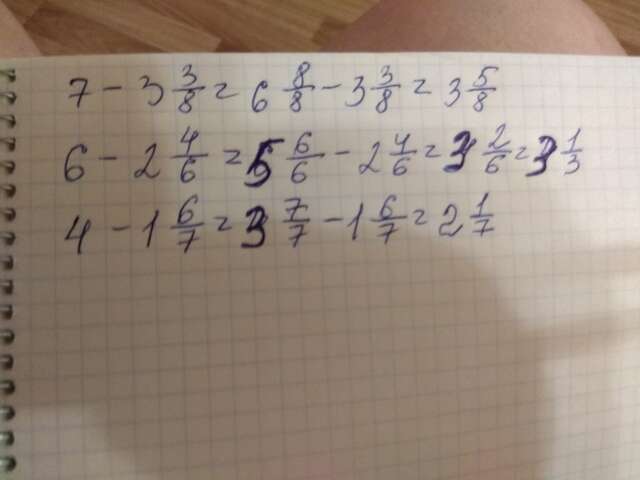 7 - 3 3/8 = 6 8/8 - 3 3/8 = 3 5/8
6 - 2 4/6 = 5 6/6 - 2 4/6 = 3 2/6 = 3 1/3
4 - 1 6/7 = 3 7/7 - 1 6/7 = 2 1/7